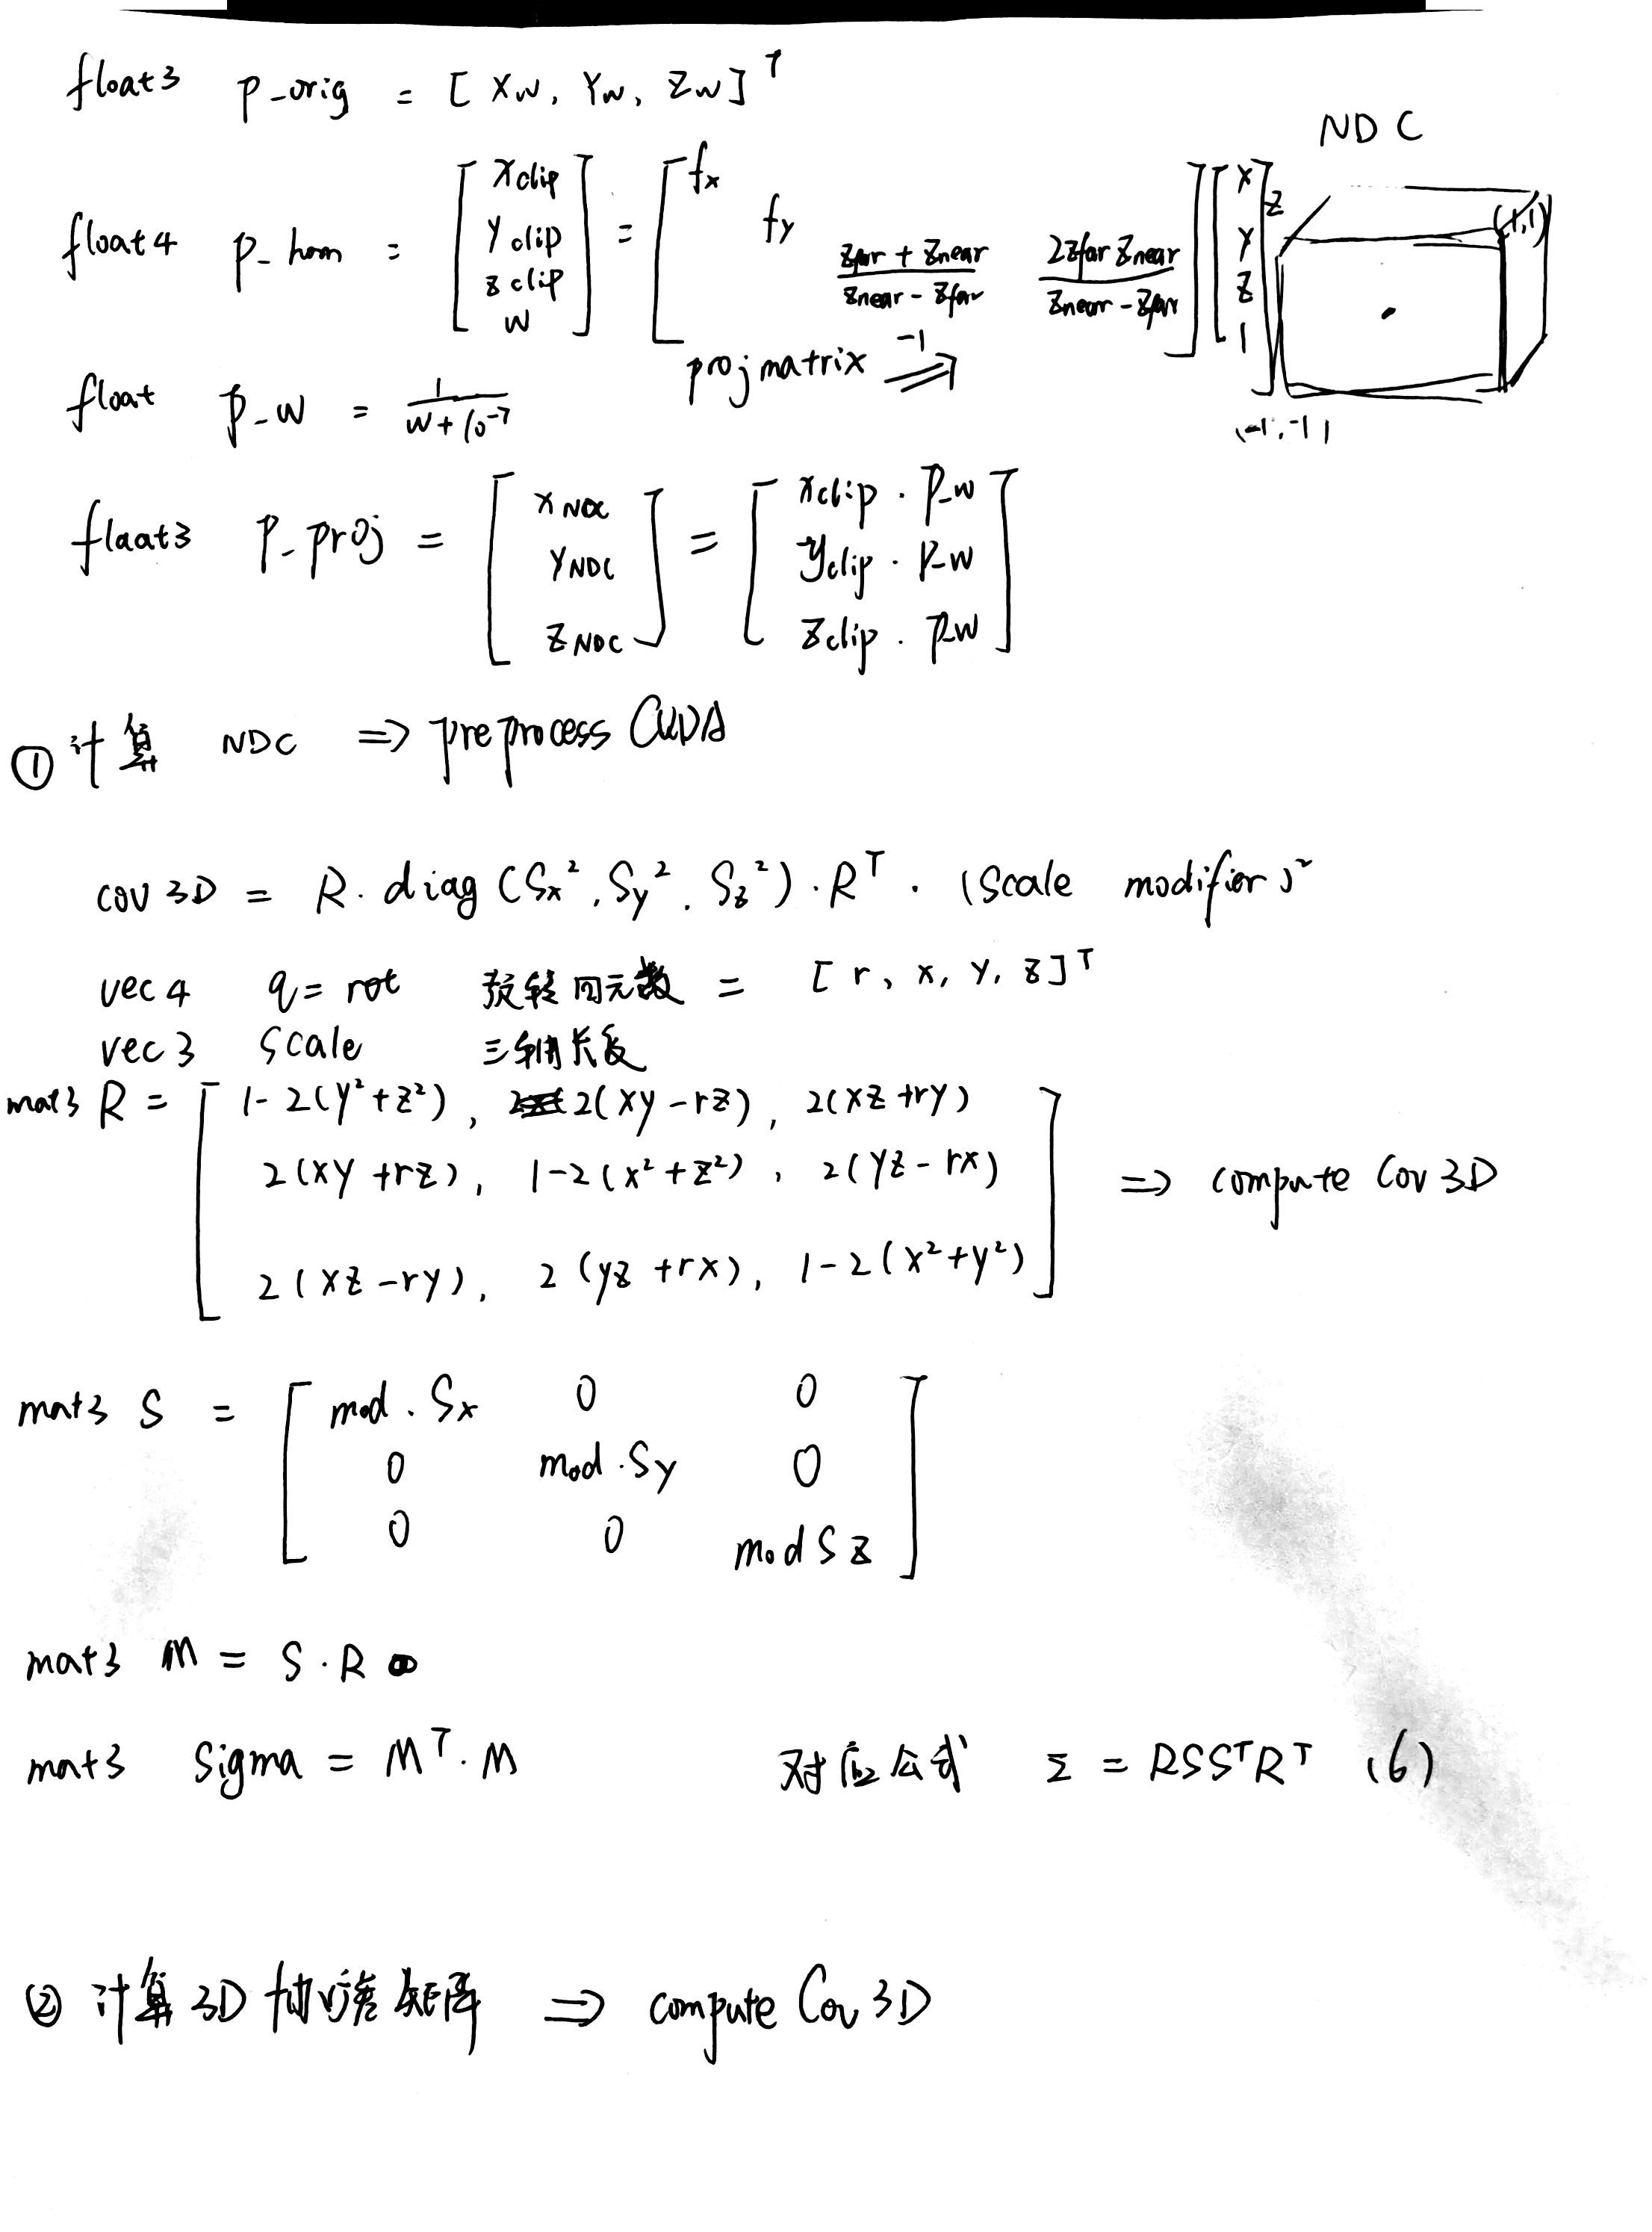 float3 p_orig = [ Xw, Yw, Zw ]ᵀ
NDC
float4 p_hom = [ Xclip Yclip Zclip W ] = [ fx fy (Zfar + Znear)/(Znear - Zfar) 2Zfar Znear/(Znear - Zfar) -1 ] [ X Y Z 1 ]
Z
(1,1)
projmatrix ⇒
float p_w = 1/(W + 10⁻⁷)
(-1,-1)
flaat3 P_proj = [ XNDC YNDC ZNDC ] = [ Xclip · P_w Yclip · P_w Zclip · P_w ]
① 计算 NDC ⇒ preprocess CUDA
cov 3D = R · diag (Sx², Sy², Sz²) · Rᵀ · (Scale modifier)²
vec4 q = rot 旋转四元数 = [ r, x, y, z ]ᵀ
vec3 scale 三轴长度
mat3 R = [ 1-2(y²+z²), 2(xy-rz), 2(xz+ry)
2(xy+rz), 1-2(x²+z²), 2(yz-rx)
⇒ compute Cov 3D
2(xz-ry), 2(yz+rx), 1-2(x²+y²) ]
mat3 S = [ mod · Sx 0 0
0 mod · Sy 0
0 0 mod Sz ]
mat3 M = S · R
mat3 Sigma = Mᵀ · M 对应公式 Σ = RSSᵀRᵀ (6)
② 计算 3D 协方差矩阵 ⇒ compute Cov 3D